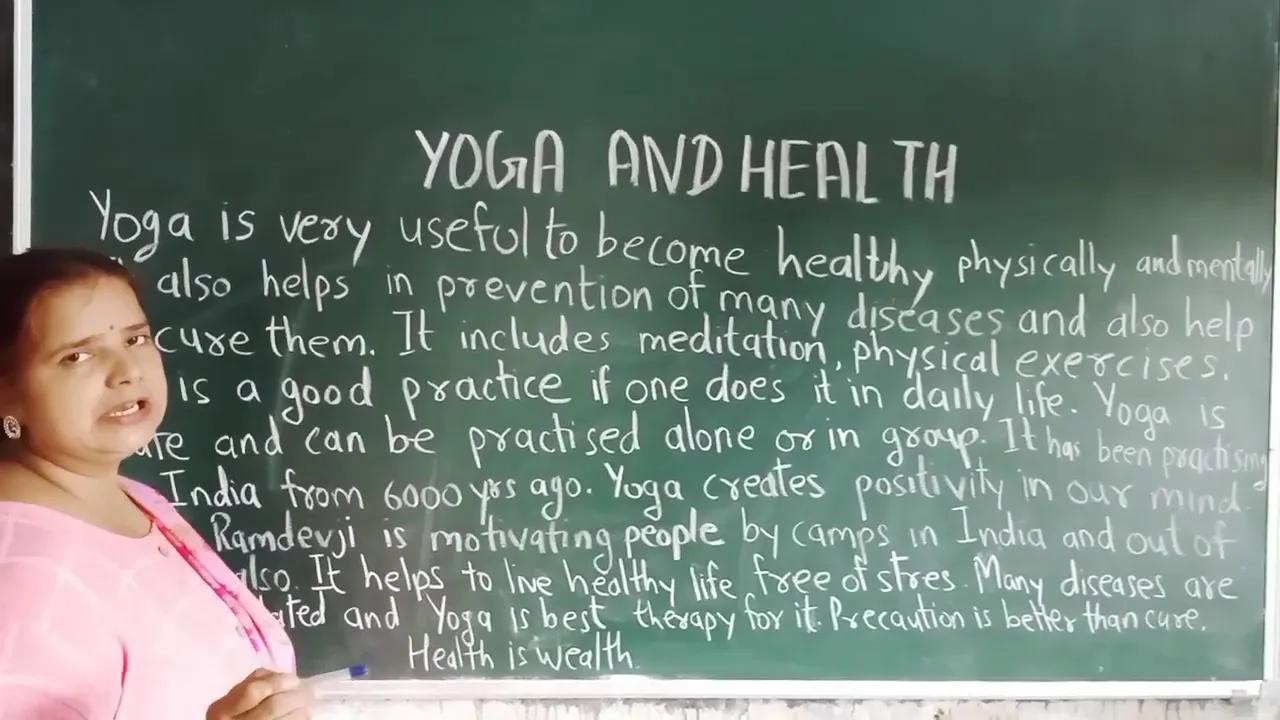 YOGA AND HEALTH
Yoga is very useful to become healthy physically and mentally
also helps in prevention of many diseases and also help
cure them. It includes meditation, physical exercises.
is a good practice if one does it in daily life. Yoga is
and can be practised alone or in group. It has been practising
India from 6000 yrs ago. Yoga creates positivity in our mind.
Ramdevji is motivating people by camps in India and out of
also. It helps to live healthy life free of stres. Many diseases are
and Yoga is best therapy for it. Precaution is better than cure.
Health is wealth.